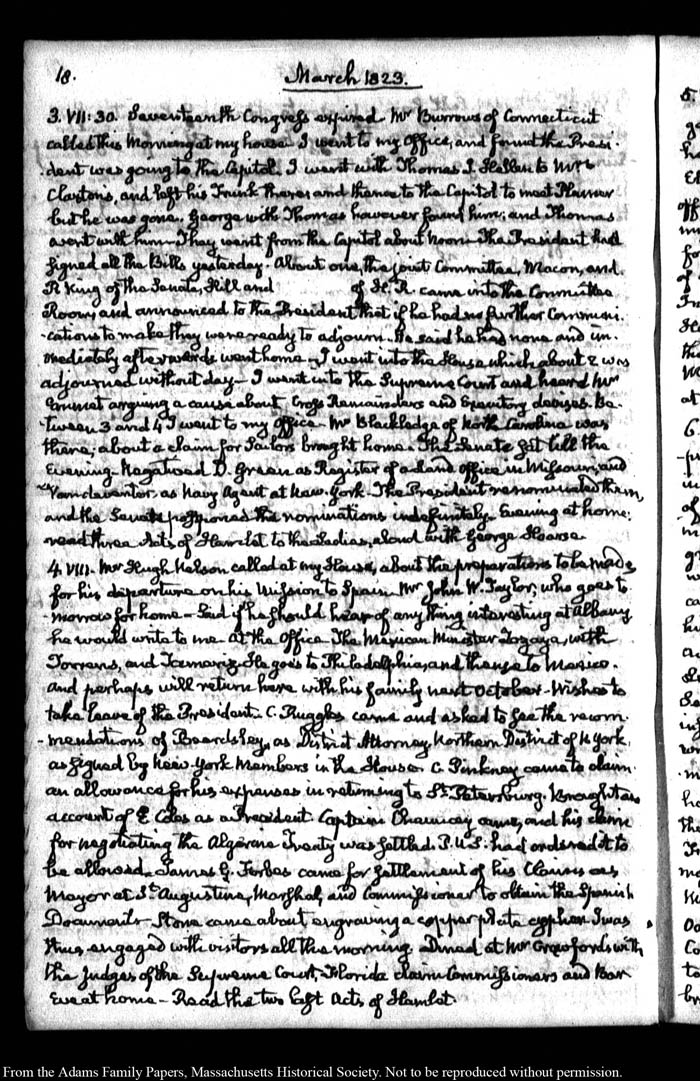 18.
March 1823.
3. VII: 30. Seventeenth Congress expired Mr Burrows of Connecticut
called this Morning at my house. I went to my Office, and found the Presi-
-dent was going to the Capitol. I went with Thomas J. Hellen to Mrs
Claxton's, and left his Trunk there; and thence to the Capitol to meet Plumer
but he was gone. George with Thomas however found him; and Thomas
went with him. They went from the Capitol about Noon. The President had
signed all the Bills yesterday. About one, the joint Committee, Macon, and
R King of the Senate, Hill and of H. R. came into the Committee
Room, and announced to the President that if he had no further Communi-
-cations to make they were ready to adjourn. He said he had none and im-
mediately afterwards went home. I went into the House which about 2 was
adjourned without day. I went into the Supreme Court and heard Mr
Emmet arguing a cause about Cross Remainders and Executory devises. Be-
-tween 3 and 4 I went to my office. Mr Blackledge of North Carolina was
there; about a claim for Sailors brought home. The Senate Set till the
Evening. Negatived D. Green as Register of a Land office in Missouri, and
Vandeventer as Navy Agent at New-York. The President renominated them,
and the Senate postponed the nominations indefinitely. Evening at home;
read three Acts of Hamlet to the Ladies, aloud with George Hoarse.
4. VIII. Mr Hugh Nelson called at my House, about the preparations to be made
for his departure on his Mission to Spain. Mr John W. Taylor, who goes to-
-morrow for home. Said if he should hear of any thing interesting at Albany
he would write to me. At the Office The Mexican Minister Zozaya, with
Torrens, and He goes to Philadelphia, and thence to Mexico.
And perhaps will return here with his family next October. Wishes to
take leave of the President. C. Ruggles came and asked to see the recom-
-mendations of Beardsley, as District Attorney Northern District of N York,
as signed by New-York Members in the House. C. Pinkney came to claim
an allowance for his expenses in returning to St. Petersburg. Brought an
account of E Coles as a President. Captain Chauncey came, and his claim
for negotiating the Algerine Treaty was settled. P.U.S. had ordered it to
be allowed. James G. Forbes came for settlement of his Claims as
Mayor at St. Augustine, Marshal, and Commissioner to obtain the Spanish
Documents. Stone came about engraving a copper plate cypher. I was
thus engaged with visitors all the morning. Dined at Mr Crawfords with
the Judges of the Supreme Court, Florida claim Commissioners and Bar
Eve at home – Read the two last Acts of Hamlet.
From the Adams Family Papers, Massachusetts Historical Society. Not to be reproduced without permission.